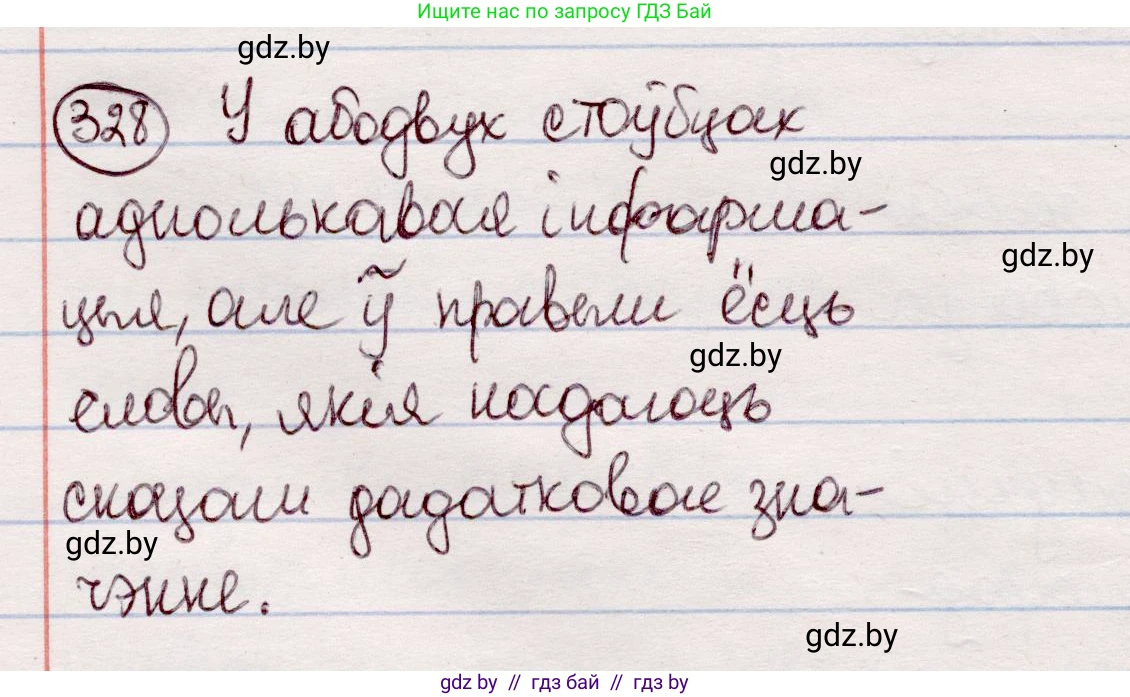 Ищите нас по запросу ГДЗ Бай
gdz.by
328 У абодвух стоўбцах
gdz.by
аднолькавая інфарма-
gdz.by
цыя, але ў правым ёсць
gdz.by
словы, якія надаюць
сказам дадатковае зна-
gdz.by
чэнне.
gdz.by
gdz by // гдз бай // gdz by